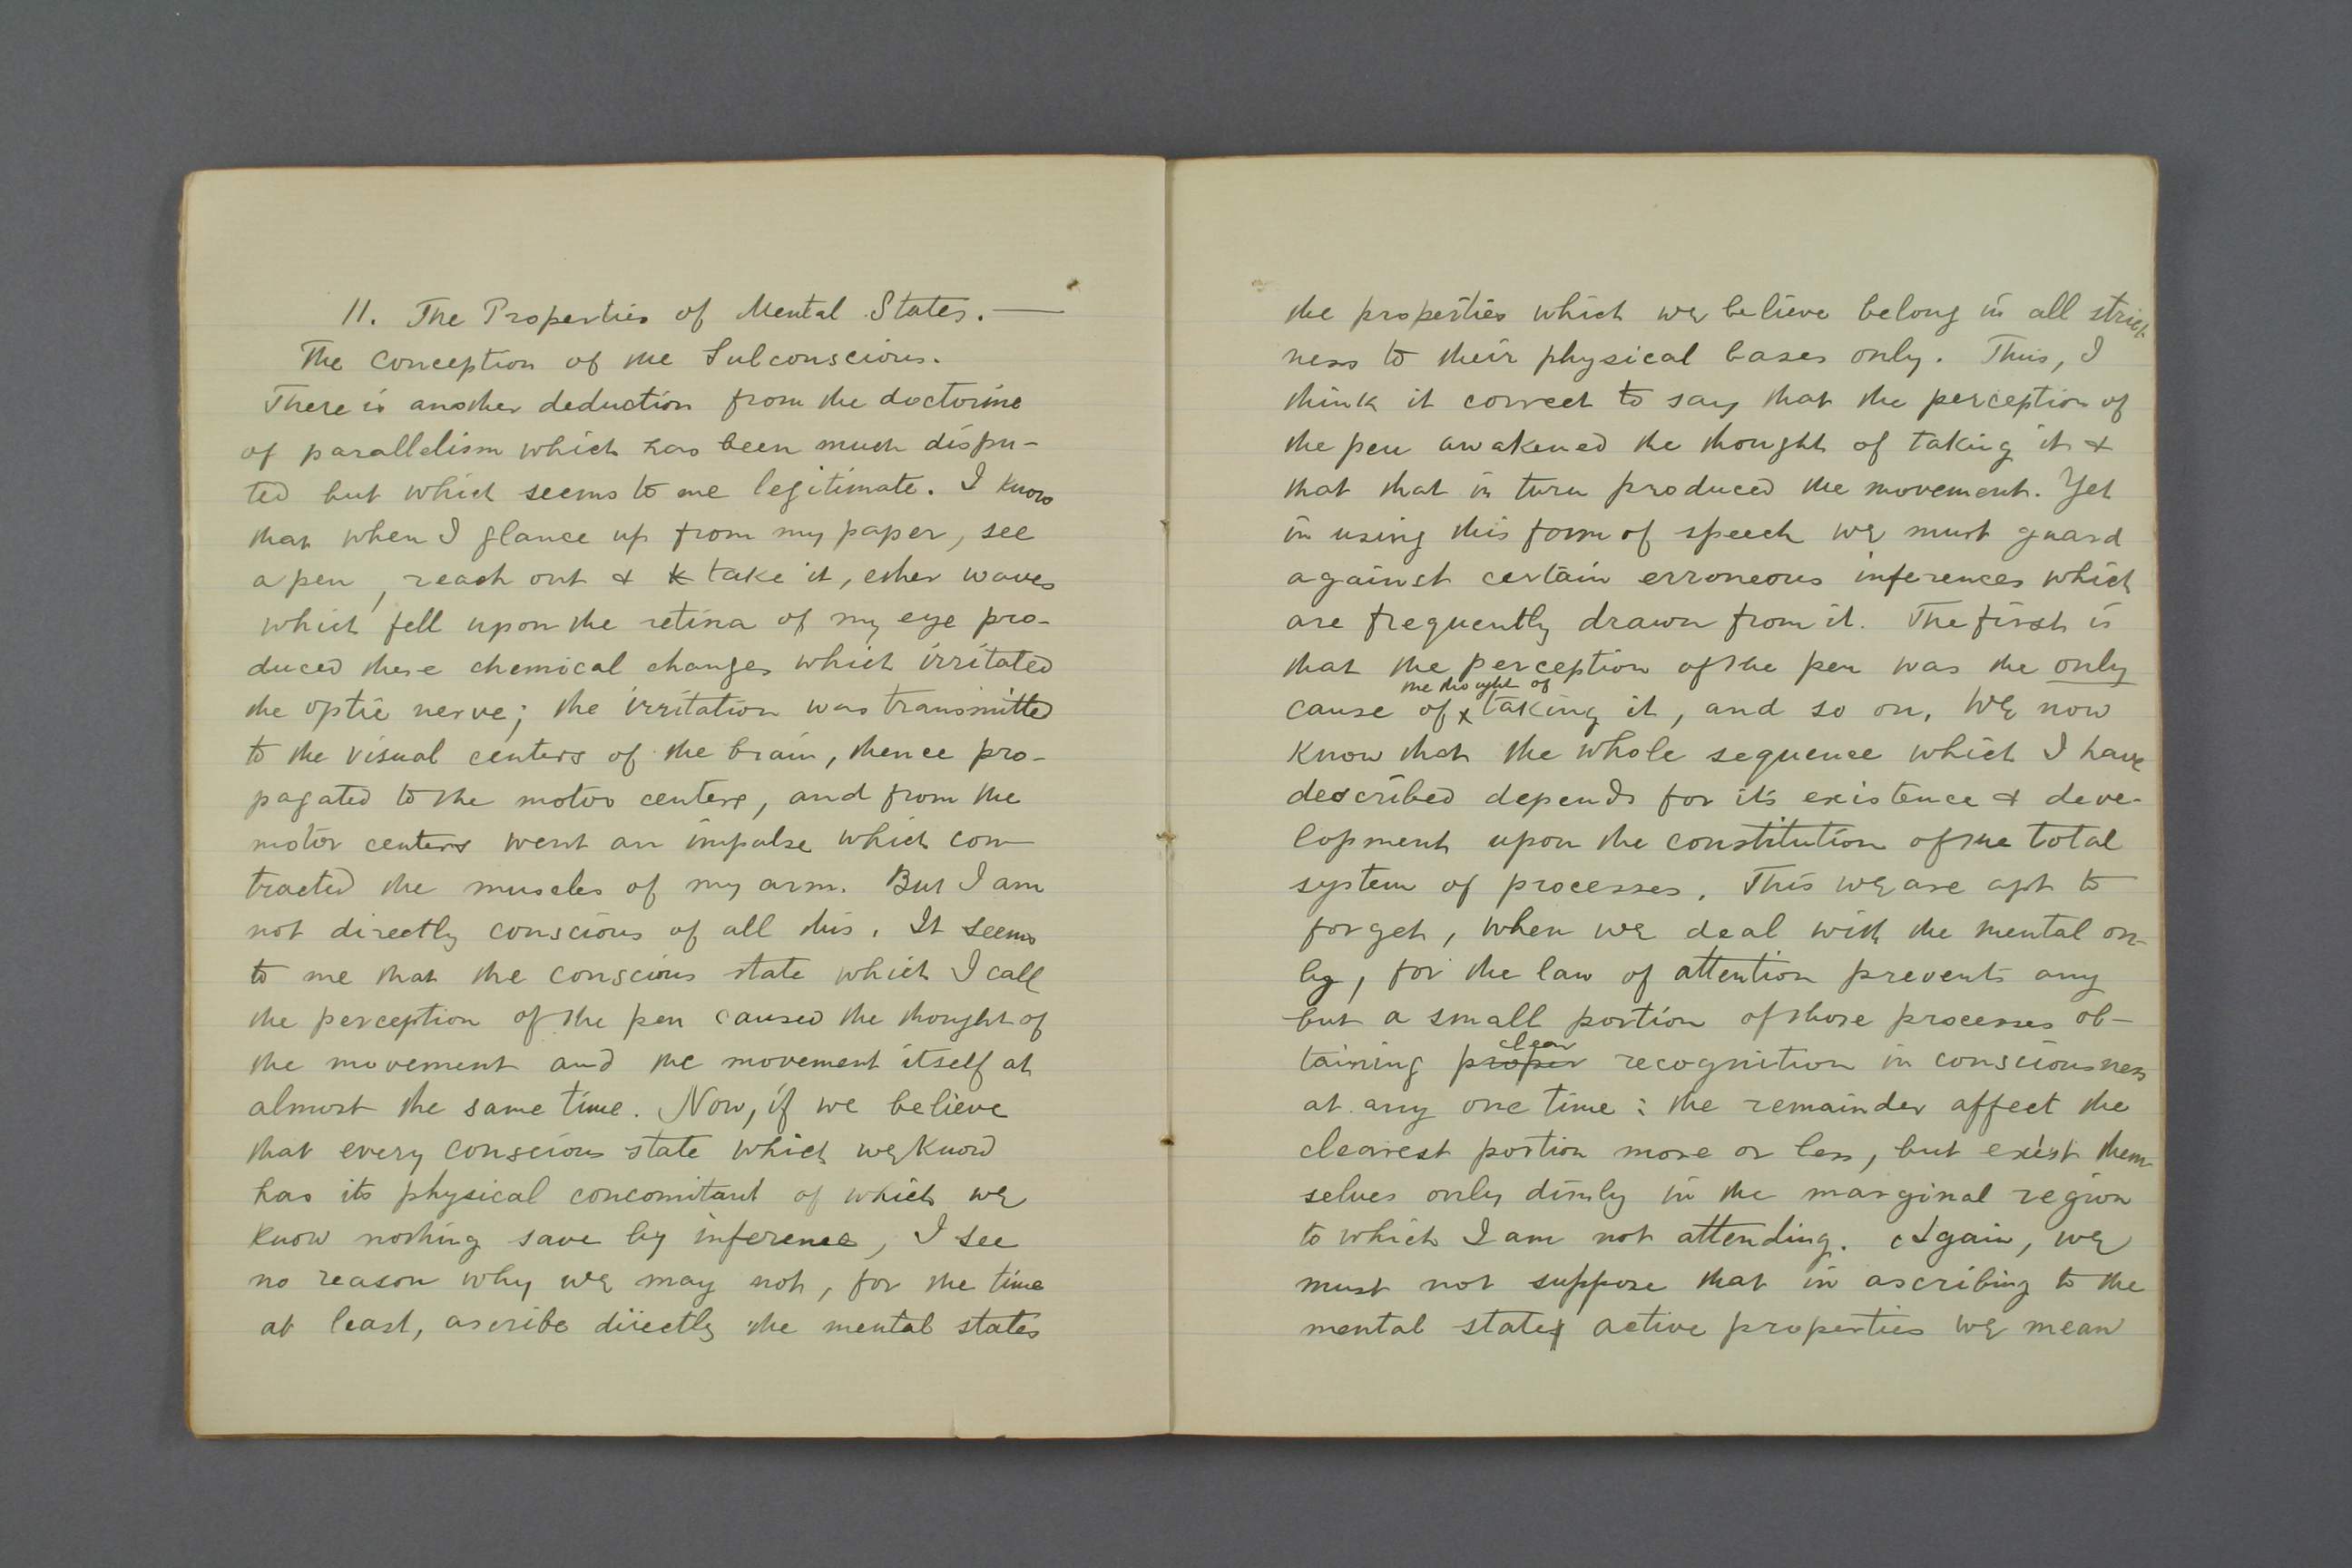 11. The Properties of Mental States. —
The Conception of the Subconscious.
There is another deduction from the doctorine
of parallelism which has been much dispu-
ted but which seems to me legitimate. I know
that when I glance up from my paper, see
a pen, reach out & take it, ether waves
which fell upon the retina of my eye pro-
duced there chemical changes which irritated
the optic nerve; the irritation was transmitted
to the visual centers of the brain, thence pro-
pagated to the motor centers, and from the
motor centers went an impulse which con-
tracted the muscles of my arm. But I am
not directly conscious of all this. It seems
to me that the conscious state which I call
the perception of the pen caused the thought of
the movement and the movement itself at
almost the same time. Now, if we believe
that every conscious state which we know
has its physical concomitant of which we
know nothing save by inference, I see
no reason why we may not, for the time
at least, ascribe directly the mental states
the properties which we believe belong in all strict-
ness to their physical bases only. Thus, I
think it correct to say that the perception of
the pen awakened the thought of taking it &
that that in turn produced the movement. Yet
in using this form of speech we must guard
against certain erroneous inferences which
are frequently drawn from it. The first is
that the perception of the pen was the only
cause of the thought of taking it, and so on. We now
know that the whole sequence which I have
described depends for its existence & deve-
lopment upon the constitution of the total
system of processes. This we are apt to
forget, when we deal with the mental on-
ly, for the law of attention prevents any
but a small portion of those processes ob-
taining proper clear recognition in consciousness
at any one time: the remainder affect the
clearest portion more or less, but exist them-
selves only dimly in the marginal region
to which I am not attending. Again, we
must not suppose that in ascribing to the
mental states active properties we mean